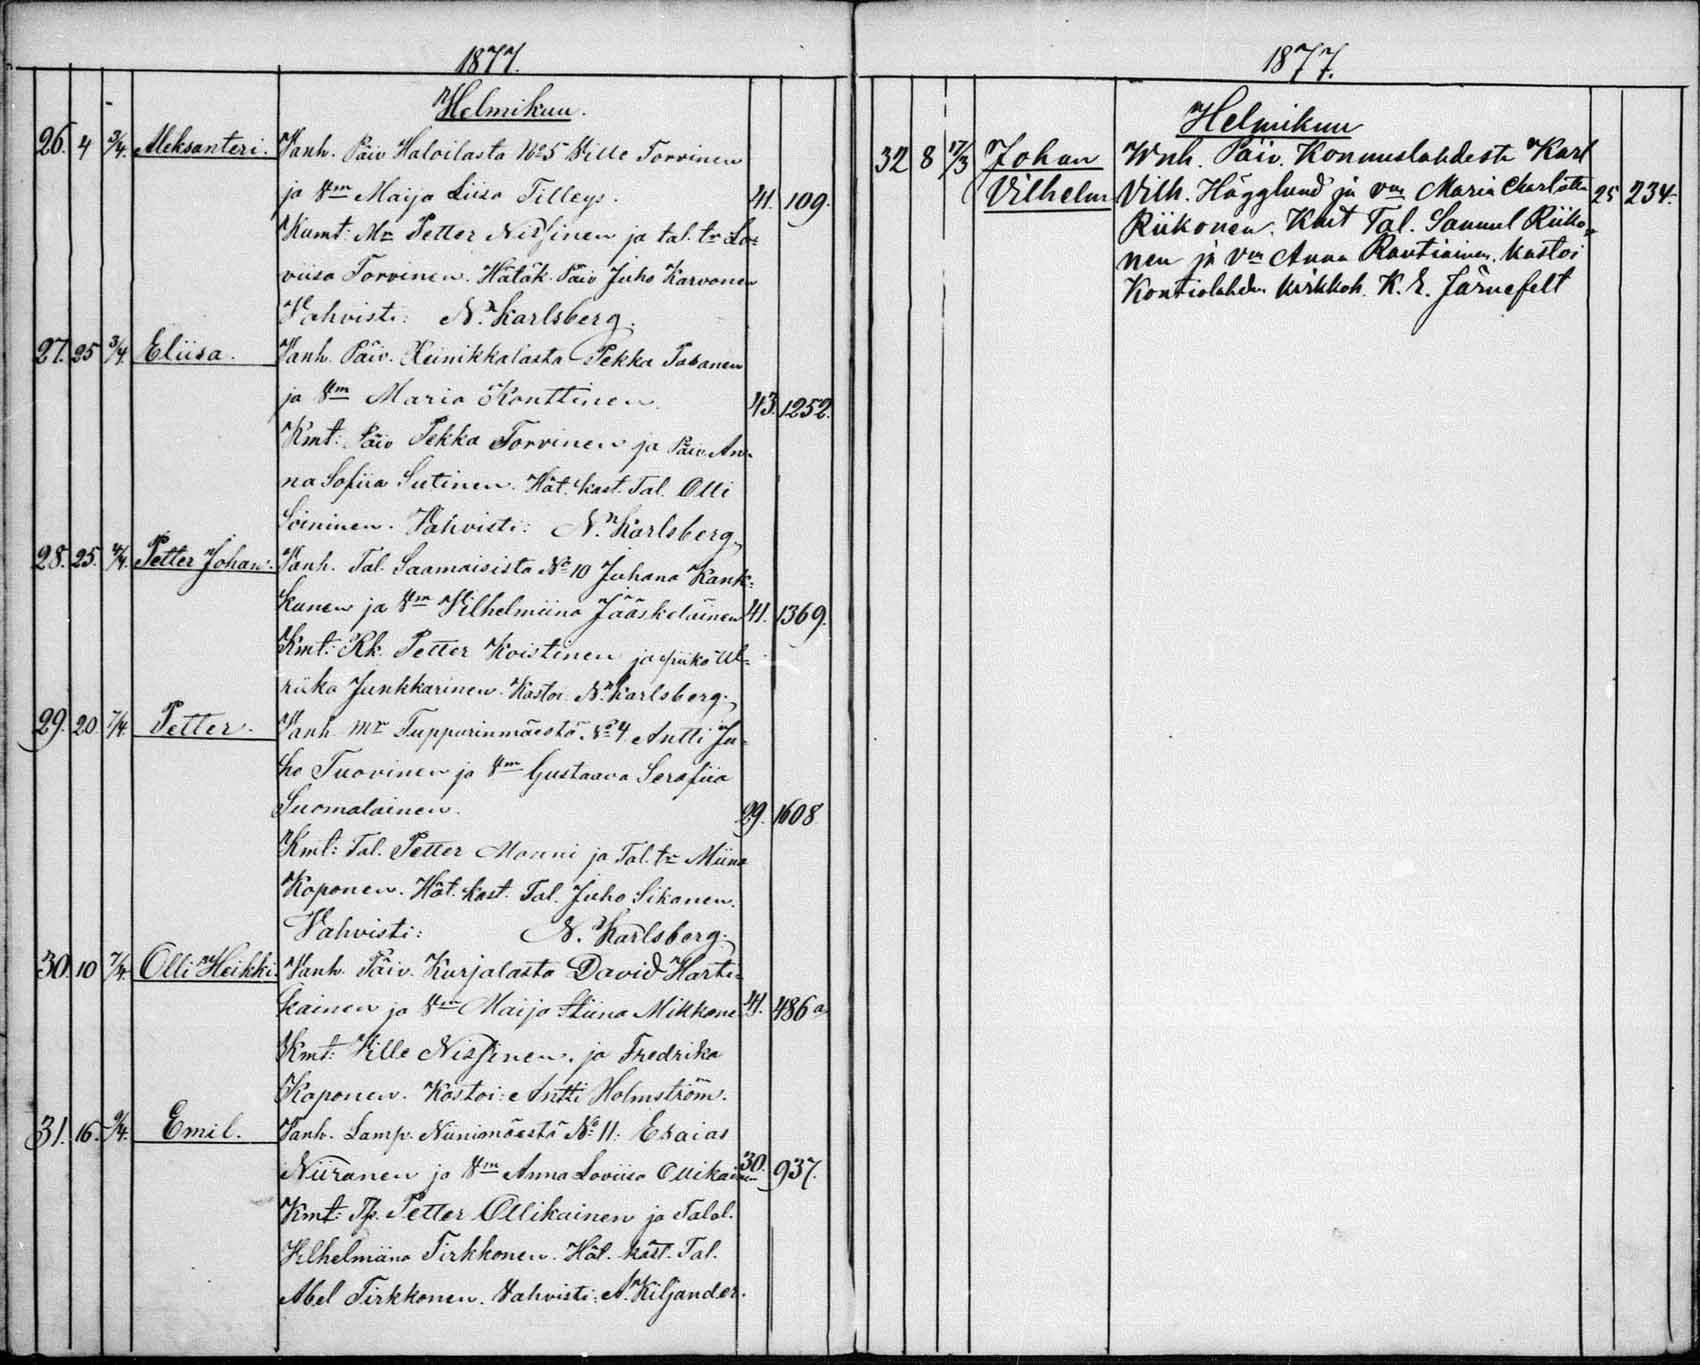 1877.
Helmikuu.
26. 4 3/4. Aleksanteri. Vanh. Päiv Haloilasta No 5 Ville Torvinen
ja Vm Maija Liisa Tilleys. 41. 109.
Kumt: Mr Petter Nissinen ja tal. tr Lo-
viisa Torvinen. Hätäk. Päiv Juho Karvonen
Vahvisti: N. Karlsberg.
27. 25 3/4. Eliisa. Vanh. Päiv. Heinikkalasta Pekka Tabanen
ja Vm Maria Konttinen. 43. 1252.
Kmt: Päiv Pekka Torvinen ja Päiv. An-
na Sofiia Sutinen. Hät. kast. Tal. Olli
Soininen. Vahvisti: N. Karlsberg.
28. 25. 4/4. Petter Johan. Vanh. Tal. Saamaisista No 10 Juhana Kank-
kunen ja Vm Vilhelmiina Jääskeläinen 41. 1369.
Kmt: Rk. Petter Koistinen ja piika Ul-
riika Junkkarinen. Kastoi N. Karlsberg.
29. 20. 7/4. Petter. Vanh. Mr Tuppurinmäestä No 4 Antti Ju-
ho Tuovinen ja Vm Gustaava Serafiia
Suomalainen. 29. 1608
Kmt: Tal. Petter Monni ja Tal. tr Miina
Koponen. Hät. kast. Tal. Juho Sikanen.
Vahvisti: N. Karlsberg.
30. 10 7/4. Olli Heikki. Vanh. Päiv. Kurjalasta David Harti-
kainen ja Vm Maija Stiina Mikkone 41. 486 a
Kmt: Ville Nissinen, ja Fredrika
Koponen. Kastoi: Antti Holmström.
31. 16. 9/4. Emil. Vanh. Lamp. Niinimäestä No 11: Esaias
Niiranen ja Vm Anna Loviisa Ollikainen 30. 937.
Kmt: Petter Ollikainen ja Talol.
Vilhelmiina Tirkkonen. Hät. kast. Tal.
Abel Tirkkonen. Vahvisti: A. Kiljander.
1877.
Helmikuu
32 8 17/3 Johan Wnh. Päiv. Konnuslahdesta Karl
Vilhelm Vilh. Hägglund ja vm Maria Charlotta 25 234.
Riikonen. Kmt Tal. Samuel Riiko-
nen ja Vm Anna Rautiainen. Kastoi
Kontiolahden kirkkoh. K. E. Järnefelt